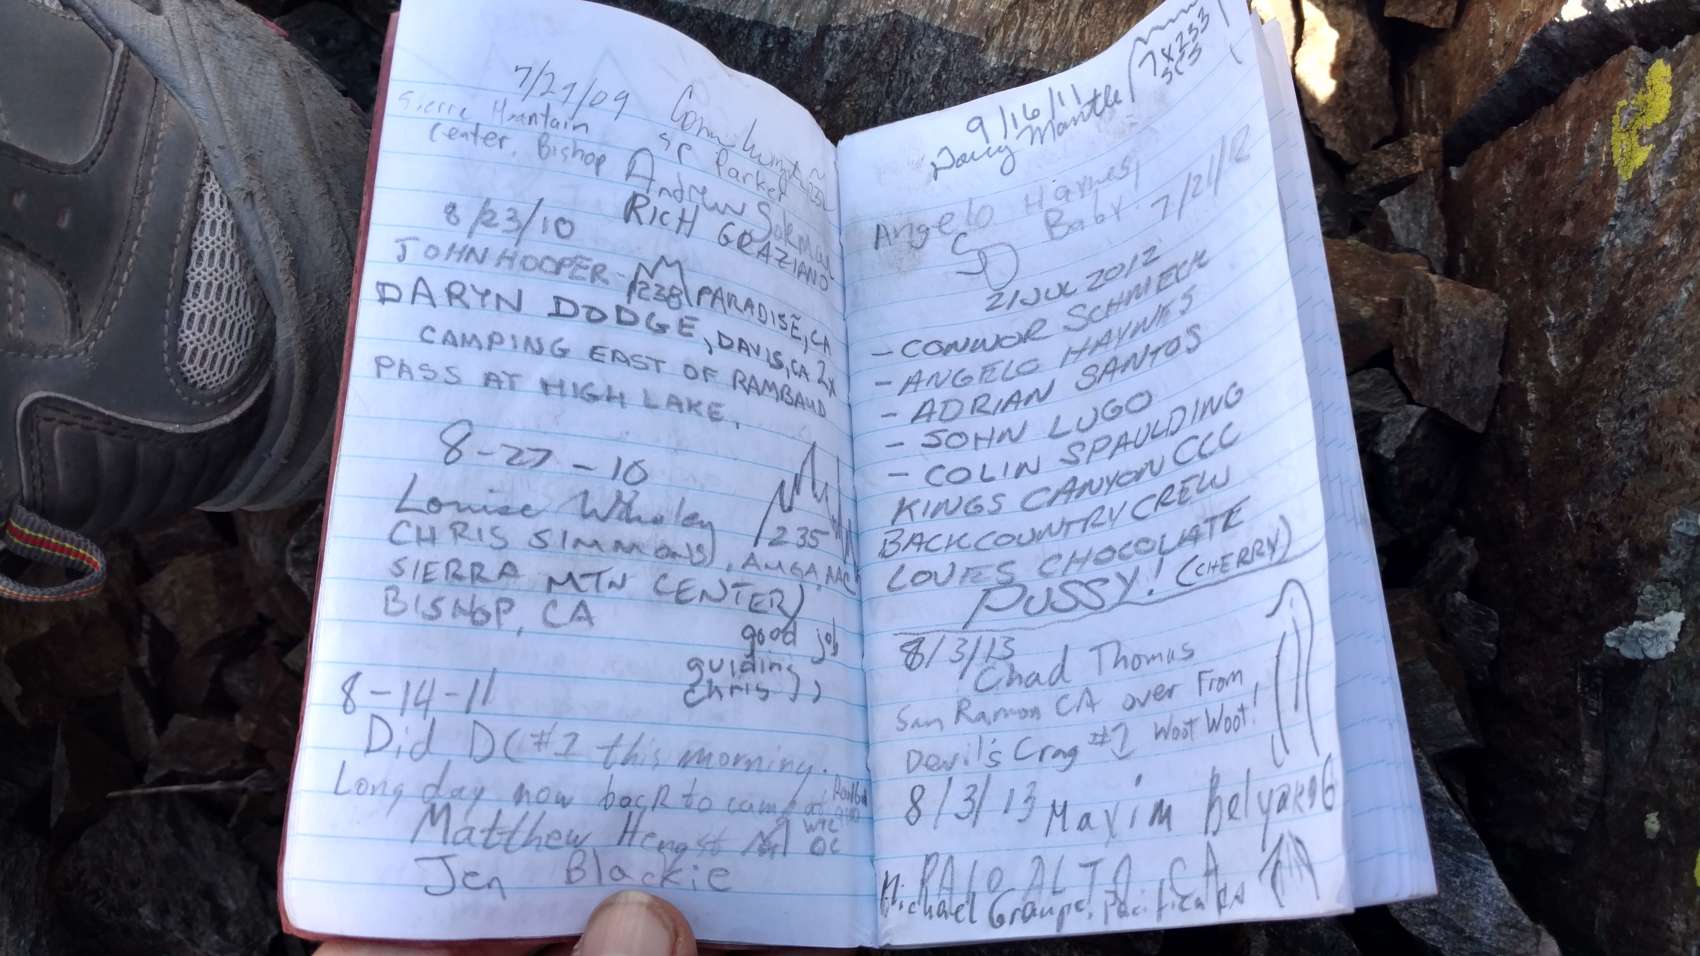 7/27/09
Sierra Mountain
Center, Bishop
SP Parker
Andrew
RICH GRAZIANO
8/23/10
JOHN HOOPER - 238 PARADISE, CA
DARYN DODGE, DAVIS, CA 2x
CAMPING EAST OF RAMBAUD
PASS AT HIGH LAKE.
8-27-10
Louise Wholey 235
CHRIS SIMMONS, AMGA, AAC
SIERRA MTN CENTER)
BISHOP, CA
good job
guiding
chris
8-14-11
Did DC #1 this morning.
Long day now back to camp at
Matthew Hengst
Jen Blackie
9/16/11
Mantle
7 x 233
Angelo Haynes,
Baby 7/21/12
21 JUL 2012
- CONNOR SCHMECK
- ANGELO HAYNES
- ADRIAN SANTOS
- JOHN LUGO
- COLIN SPAULDING
KINGS CANYON CCC
BACKCOUNTRY CREW
LOVES CHOCOLATE
PUSSY! (CHERRY)
8/3/13
Chad Thomas
San Ramon CA over From
Devil's Crag #1 Woot Woot!
8/3/13 Maxim
PALO ALTO, CA
Michael